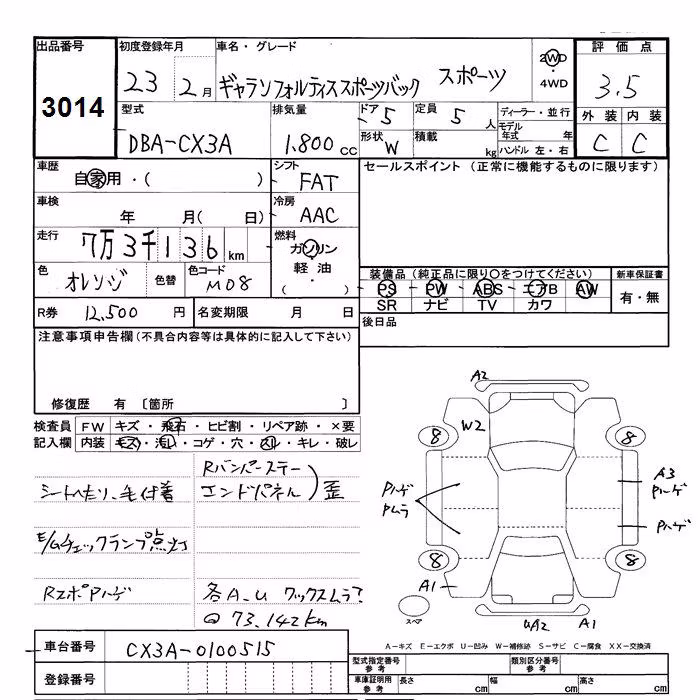 出品番号 初度登録年月 車名・グレード 評価点
3014 23 2月 ギャランフォルティススポーツバック スポーツ 2WD ・ 4WD 3.5
型式 排気量 ドア 5 定員 5人 ディーラー・並行 外装 内装
DBA-CX3A 1.800cc 形状 W 積載 kg モデル年式 年 ハンドル 左・右 C C
車歴 自家用・( ) シフト FAT セールスポイント (正常に機能するものに限ります)
車検 年 月( 日) 冷房 AAC
走行 7万3千136km 燃料 ガソリン 軽油 ( ・ )
色 オレンジ 色替 色コード M08 装備品 (純正品に限り○をつけてください) 新車保証書
PS PW ABS エアB AW 有・無
SR ナビ TV カワ
R券 12,500円 名変期限 月 日 後日品
注意事項申告欄 (不具合内容等は具体的に記入して下さい)
修復歴 有 〔箇所 〕
検査員 FW キズ・飛石・ヒビ割・リペア跡・×要
記入欄 内装 キズ・汚レ・コゲ・穴・スレ・キレ・破レ
Rバンパーステー
エンドパネル ) 歪
シートへたり、毛付着
E/Gチェックランプ点灯
RスポPハゲ 各A-U ワックスムラ?
73.142km
A2
W2
8 8
Pハゲ
Pムラ
A3
Pハゲ
Pハゲ
8 8
A1
スペア
UA2 A1
車台番号 CX3A-0100515
登録番号
A-キズ E-エクボ U-凹み W-補修跡 S-サビ C-腐食 XX-交換済
型式指定番号 参考 類別区分番号 参考
車庫証明用 参考 長さ cm 幅 cm 高さ cm